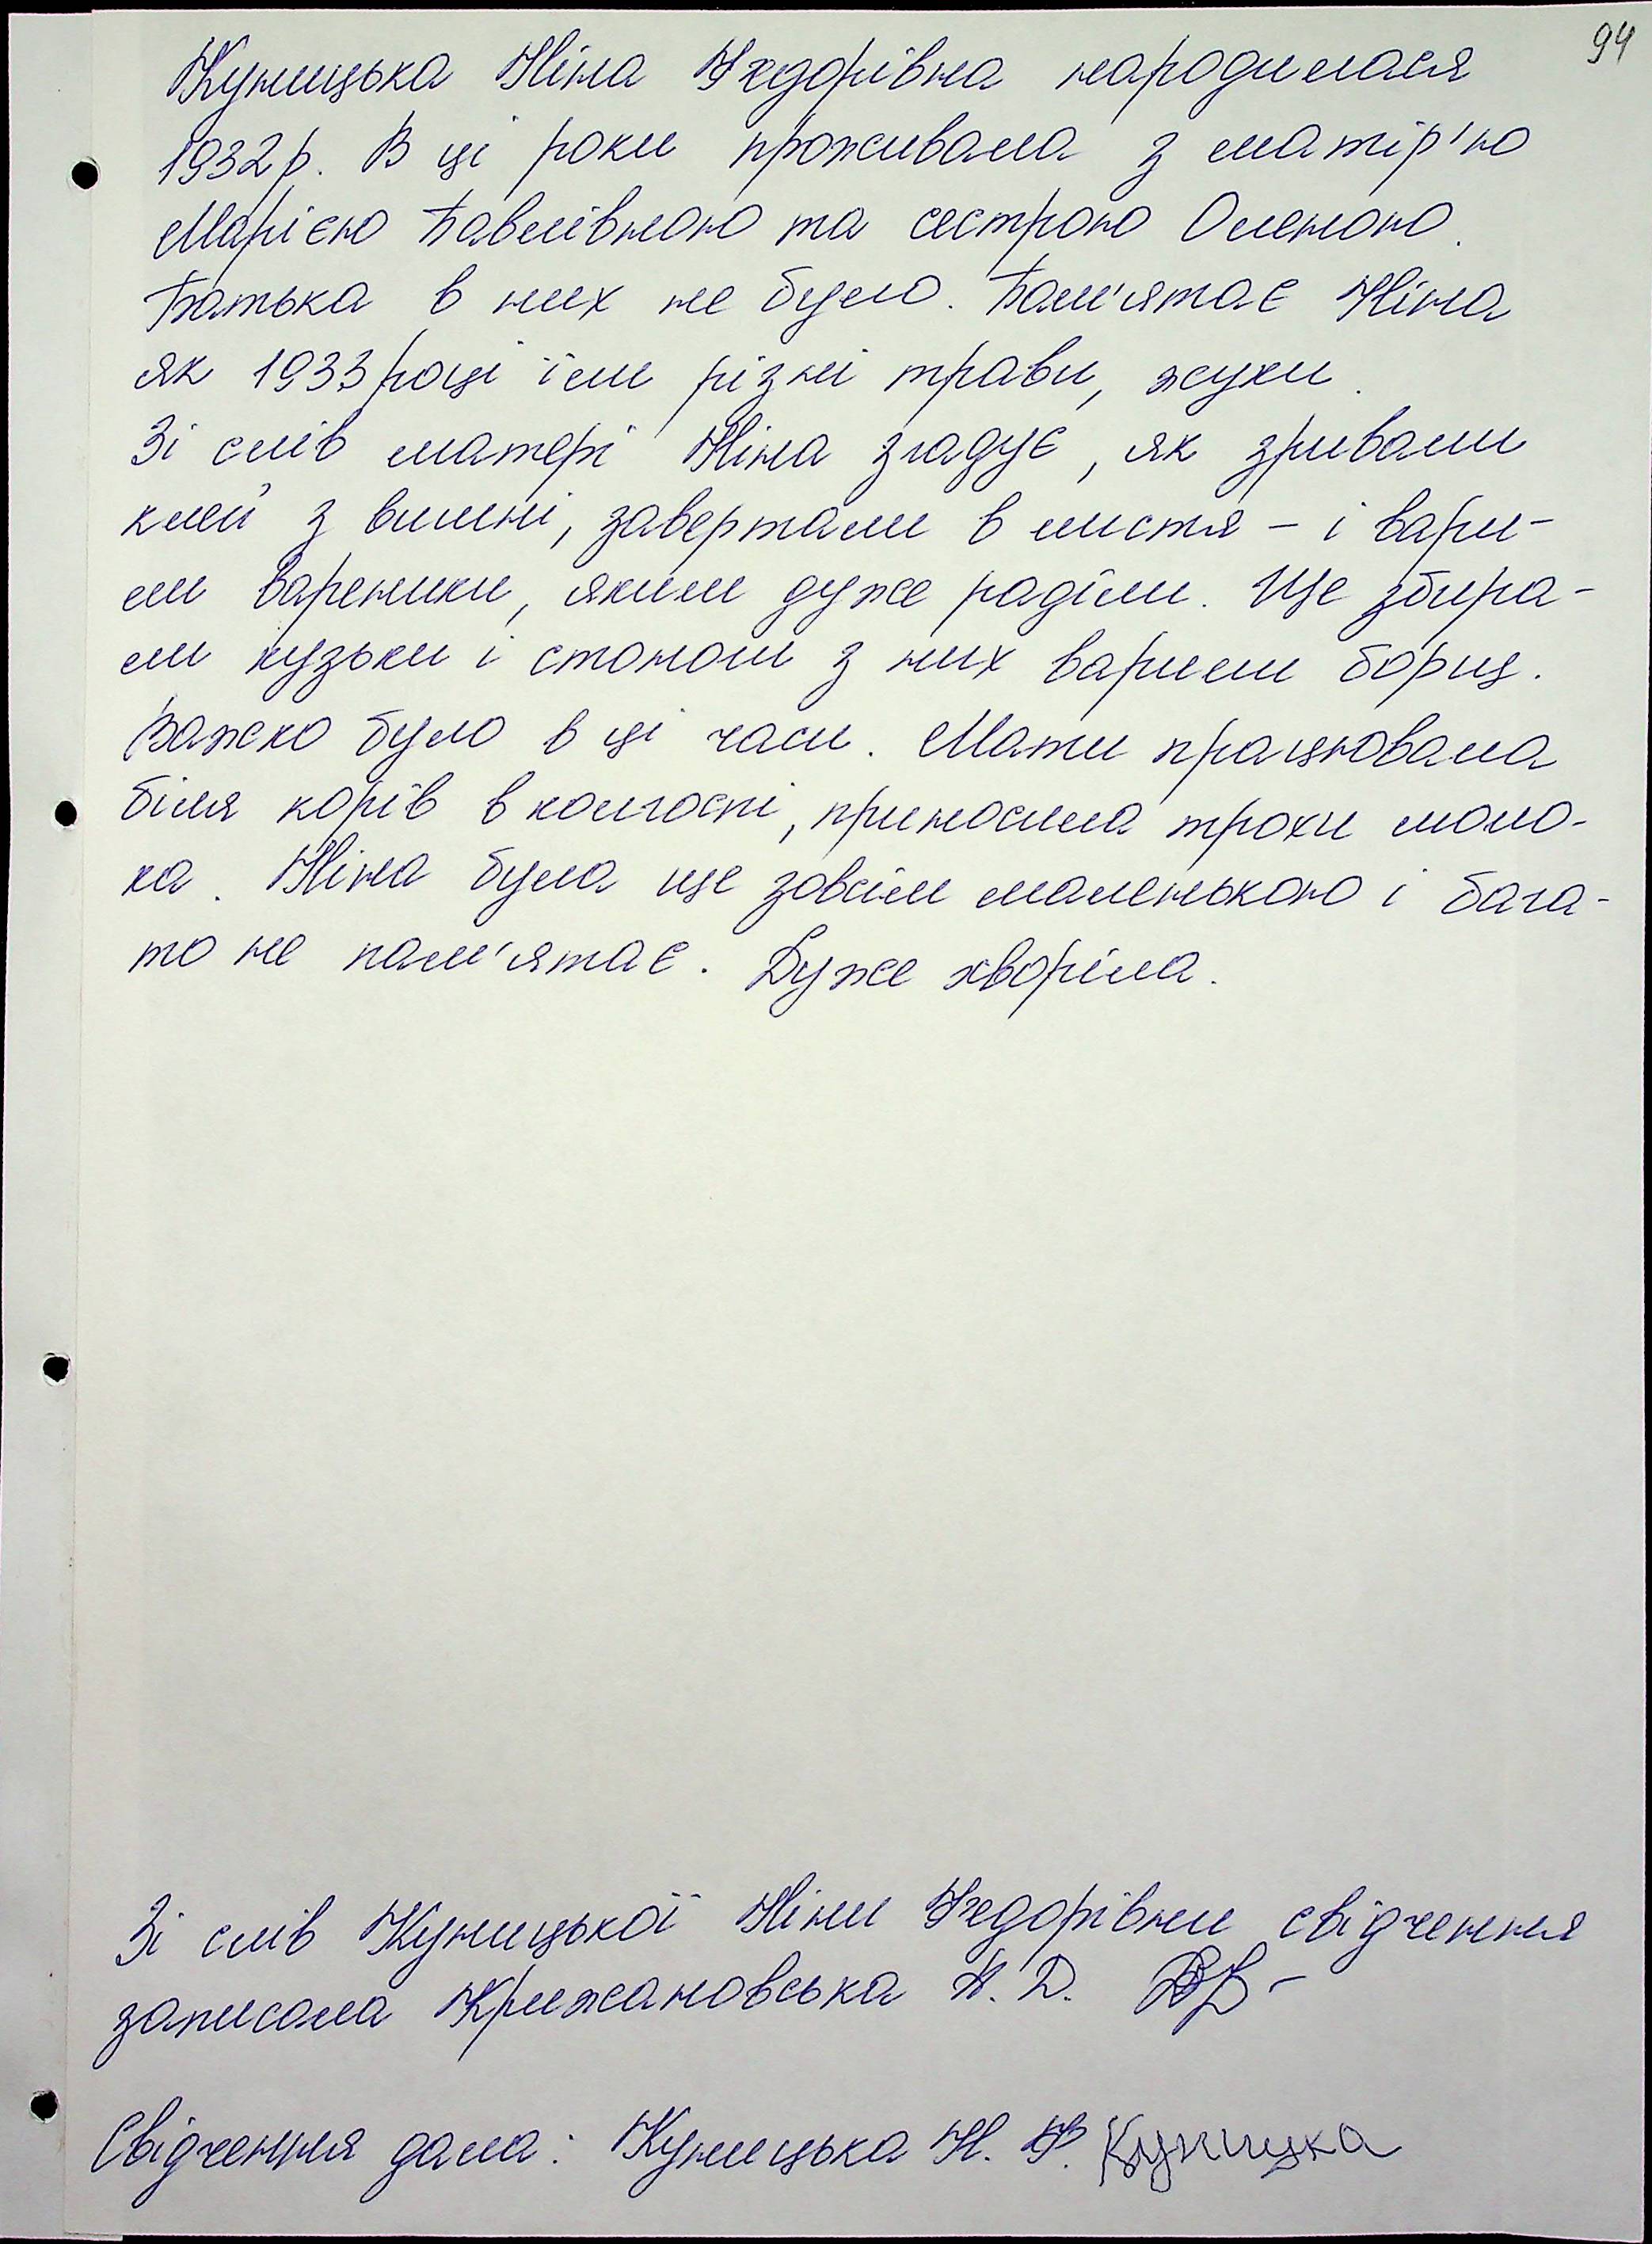 94
Куницька Ніна Федорівна народилася
1932р. В ці роки проживала з матір'ю
Марією Павлівною та сестрою Оленою.
Батька в них не було. Пам'ятає Ніна
як 1933 році їли різні трави, жуки.
Зі слів матері Ніна згадує, як зривали
клей з вишні, завертали в листя – і вари-
ли вареники, яким дуже раділи. Ще збира-
ли кузьки і стоноги з них варили борщ.
Важко було в ці часи. Мати працювала
біля корів в колгоспі, приносила трохи моло-
ка. Ніна була ще зовсім маленькою і бага-
то не пам'ятає. Дуже хворіла.
Зі слів Куницької Ніни Федорівни свідчення
записала Крижановська Н. Д.
Свідчення дала: Куницька Н. Ф. Куницка